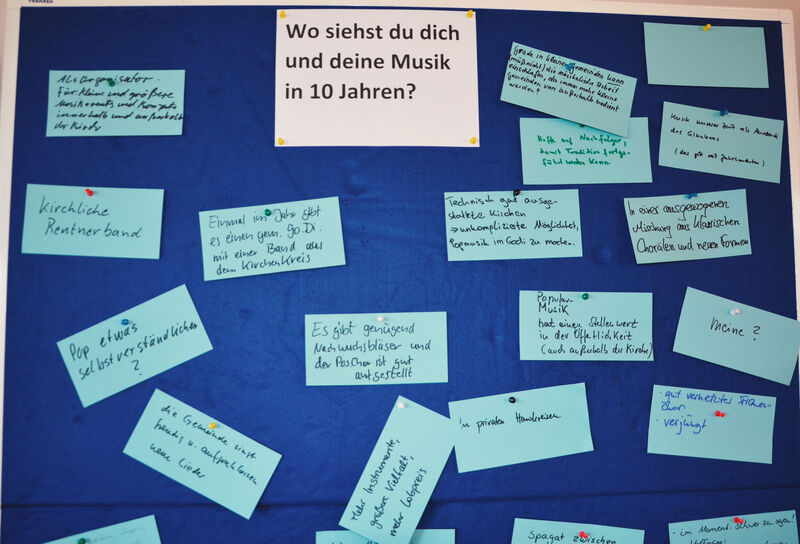 Wo siehst du dich
und deine Musik
in 10 Jahren?
Als Organisator
für kleine und größere
Musikevents und Konzerte
innerhalb und außerhalb
der Kirche
Grade in kleinen Gemeinden kann
(muß nicht) die musikalische Arbeit
einschlafen, da immer mehr kleine
Gemeinden von außerhalb bedient
werden.
Hoffe auf Nachfolger,
damit Tradition fortge-
führt werden kann.
Musik unserer Zeit als Ausdruck
des Glaubens
Kirchliche
Rentnerband
Einmal im Jahr gibt
es einen gem. Go.Di.
mit einer Band aus
dem Kirchenkreis
Technisch gut ausge-
stattete Kirchen
⇒ unkomplizierte Möglichkeit,
Popmusik im Godi zu machen.
In einer ausgewogenen
Mischung aus klassischen
Chorälen und neuen Formen
Pop etwas
selbstverständlicher
?
Es gibt genügend
Nachwuchsbläser und
der PosChor ist gut
aufgestellt
Popular-
Musik
hat einen Stellenwert
in der Öffentlichkeit
(auch außerhalb der Kirche)
Meine?
die Gemeinde singt
freudig u. aufgeschlossen
neue Lieder
Mehr Instrumente,
größere Vielfalt,
mehr Lobpreis
In privaten Hauskreisen
· gut vernetzter
chor
· verjüngt
Spagat zwischen
- im Moment: schwer zu sagen!